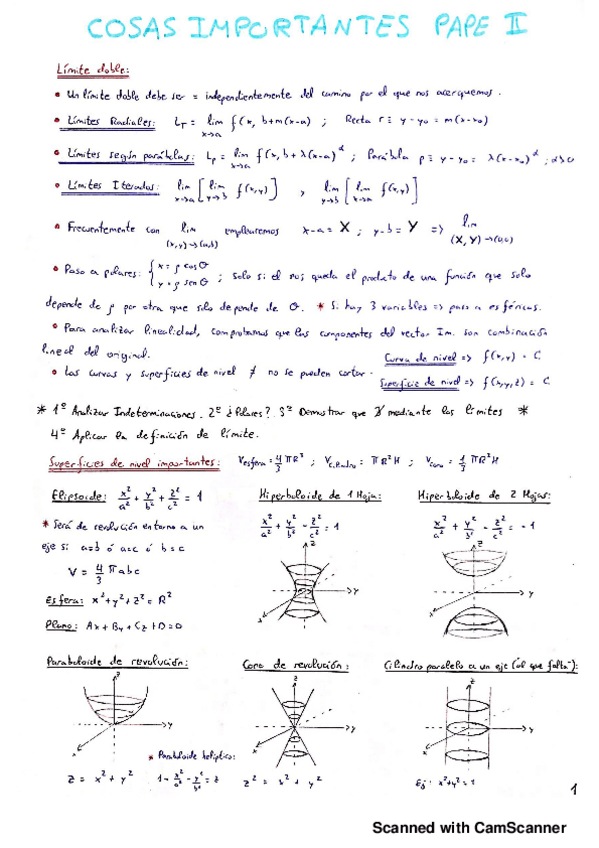 COSAS IMPORTANTES PAPE II
Límite doble:
• Un límite doble debe ser = independientemente del camino por el que nos acerquemos.
• Límites Radiales: Lr = lim x→a f(x, b+m(x-a)) ; Recta r ≡ y-y₀ = m(x-x₀)
• Límites según parábolas: Lp = lim x→a f(x, b+λ(x-a)^α) ; Parábola p ≡ y-y₀ = λ(x-x₀)^α ; α>0
• Límites Iterados: lim x→a [lim y→b f(x,y)] , lim y→b [lim x→a f(x,y)]
• Frecuentemente con lim (x,y)→(a,b) emplearemos x-a = X ; y-b = Y => lim (X,Y)→(0,0)
• Paso a polares: { x = ρ cos θ y = ρ sen θ ; solo si el nos queda el producto de una función que solo
depende de ρ por otra que solo depende de θ. * Si hay 3 variables => paso a esféricas.
• Para analizar linealidad, comprobamos que las componentes del vector Im. son combinación
lineal del original.
Curva de nivel => f(x,y) = C
• Las curvas y superficies de nivel ≠ no se pueden cortar.
Superficie de nivel => f(x,y,z) = C
* 1º Analizar Indeterminaciones. 2º ¿Polares? 3º Demostrar que ∄ mediante los límites *
4º Aplicar la definición de límite.
Superficies de nivel importantes: Vesfera = 4/3 πR³ ; Vcilindro = πR²H ; Vcono = 1/3 πR²H
Elipsoide: x²/a² + y²/b² + z²/c² = 1
Hiperboloide de 1 Hoja:
x²/a² + y²/b² - z²/c² = 1
Hiperboloide de 2 Hojas:
x²/a² + y²/b² - z²/c² = -1
* Será de revolución entorno a un
eje si a=b ó a=c ó b=c
V = 4/3 πabc
Esfera: x²+y²+z² = R²
Plano: Ax+By+Cz+D=0
z
y
x
z
y
x
Paraboloide de revolución:
Cono de revolución:
Cilindro paralelo a un eje (al que falta):
z
y
x
z
y
x
z
y
x
* Paraboloide helíptico:
z = x² + y²
1 - x²/a² - y²/b² = z
z² = x² + y²
Ej: x²+y²=1
1
Scanned with CamScanner